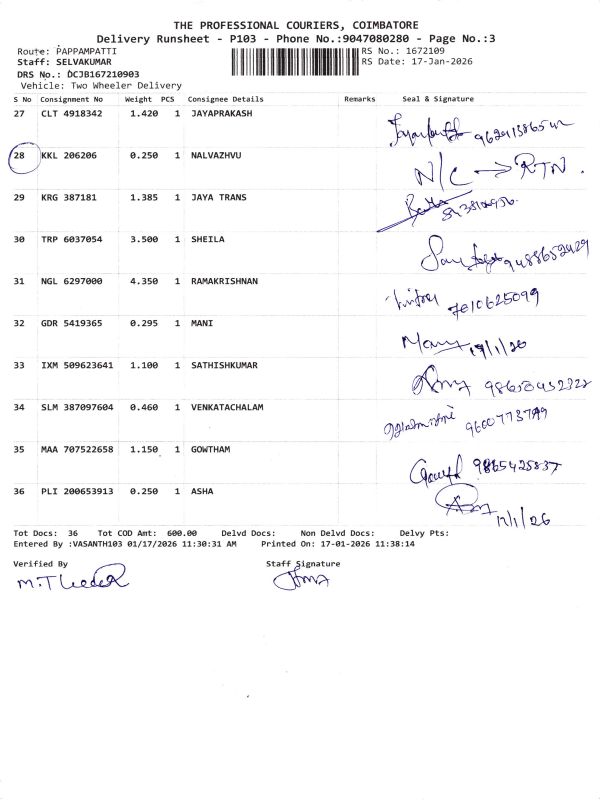 THE PROFESSIONAL COURIERS, COIMBATORE
Delivery Runsheet - P103 - Phone No.:9047080280 - Page No.:3
Route: PAPPAMPATTI
RS No.: 1672109
Staff: SELVAKUMAR
RS Date: 17-Jan-2026
DRS No.: DCJB167210903
Vehicle: Two Wheeler Delivery
S No Consignment No Weight PCS Consignee Details Remarks Seal & Signature
27 CLT 4918342 1.420 1 JAYAPRAKASH
28 KKL 206206 0.250 1 NALVAZHVU N/C → RTN.
29 KRG 387181 1.385 1 JAYA TRANS
30 TRP 6037054 3.500 1 SHEILA 9488652429
31 NGL 6297000 4.350 1 RAMAKRISHNAN 7010625099
32 GDR 5419365 0.295 1 MANI Many
33 IXM 509623641 1.100 1 SATHISHKUMAR
34 SLM 387097604 0.460 1 VENKATACHALAM
35 MAA 707522658 1.150 1 GOWTHAM 9865425837
36 PLI 200653913 0.250 1 ASHA 17/1/26
Tot Docs: 36 Tot COD Amt: 600.00 Delvd Docs: Non Delvd Docs: Delvy Pts:
Entered By :VASANTH103 01/17/2026 11:30:31 AM Printed On: 17-01-2026 11:38:14
Verified By Staff Signature